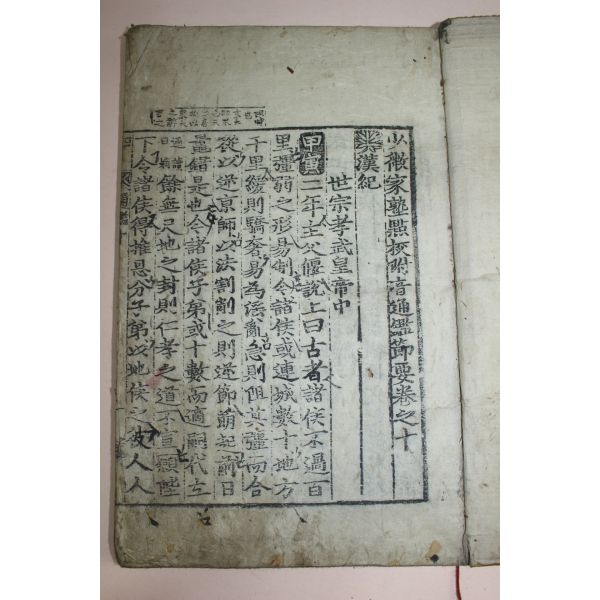 少微家塾點校附音通鑑節要卷之十
漢紀
世宗孝武皇帝中
甲寅二年主父偃說上曰古者諸侯不過百
里彊弱之形易制今諸侯或連城數十地方
千里緩則驕奢易為淫亂急則阻其彊而合
從以逆京師以法割削之則逆節萌起前日
鼂錯是也今諸侯子弟或十數而適嗣代立
餘無尺地之封則仁孝之道不宣願陛
下令諸侯得推恩分子弟以地侯之彼人人